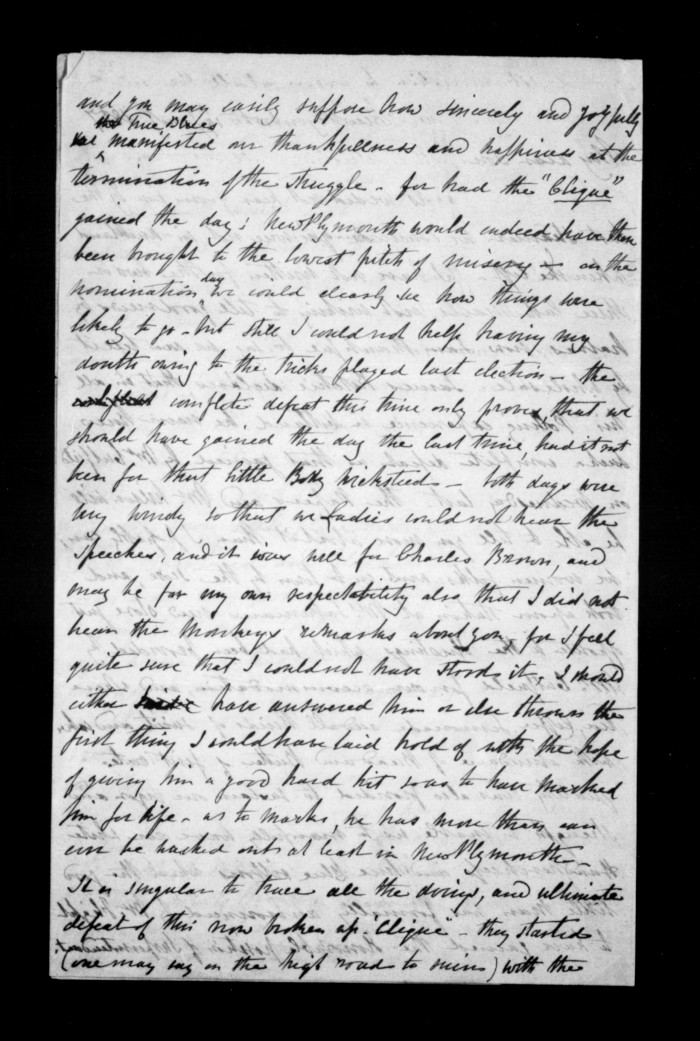 and you may easily suppose how sincerely and joyfully
the True Blues
manifested our thankfullness and happiness at the
termination of the struggle - for had the "Clique"
gained the day; New Plymouth would indeed have then
been brought to the lowest pitch of misery - on the
nomination day we could clearly see how things were
likely to go - but still I could not help having my
doubts owing to the tricks played last election - the
complete defeat this time only proves, that we
should have gained the day the last time, had it not
been for that little Body Wicksteed - both days were
very windy so that we Ladies could not hear the
speeches, and it was well for Charles Brown, and
may be for my own respectability also that I did not
hear the Monkeys remarks about you, for I feel
quite sure that I could not have stood it. I should
either have answered him or else thrown the
first thing I could have laid hold of with the hope
of giving him a good hard hit so as to have marked
him for life - as to marks, he has more than can
ever be washed out at least in New Plymouth -
It is singular to trace all the doings, and ultimate
defeat of this now broken up "Clique" - they started
(one may say on the high road to ruin) with the